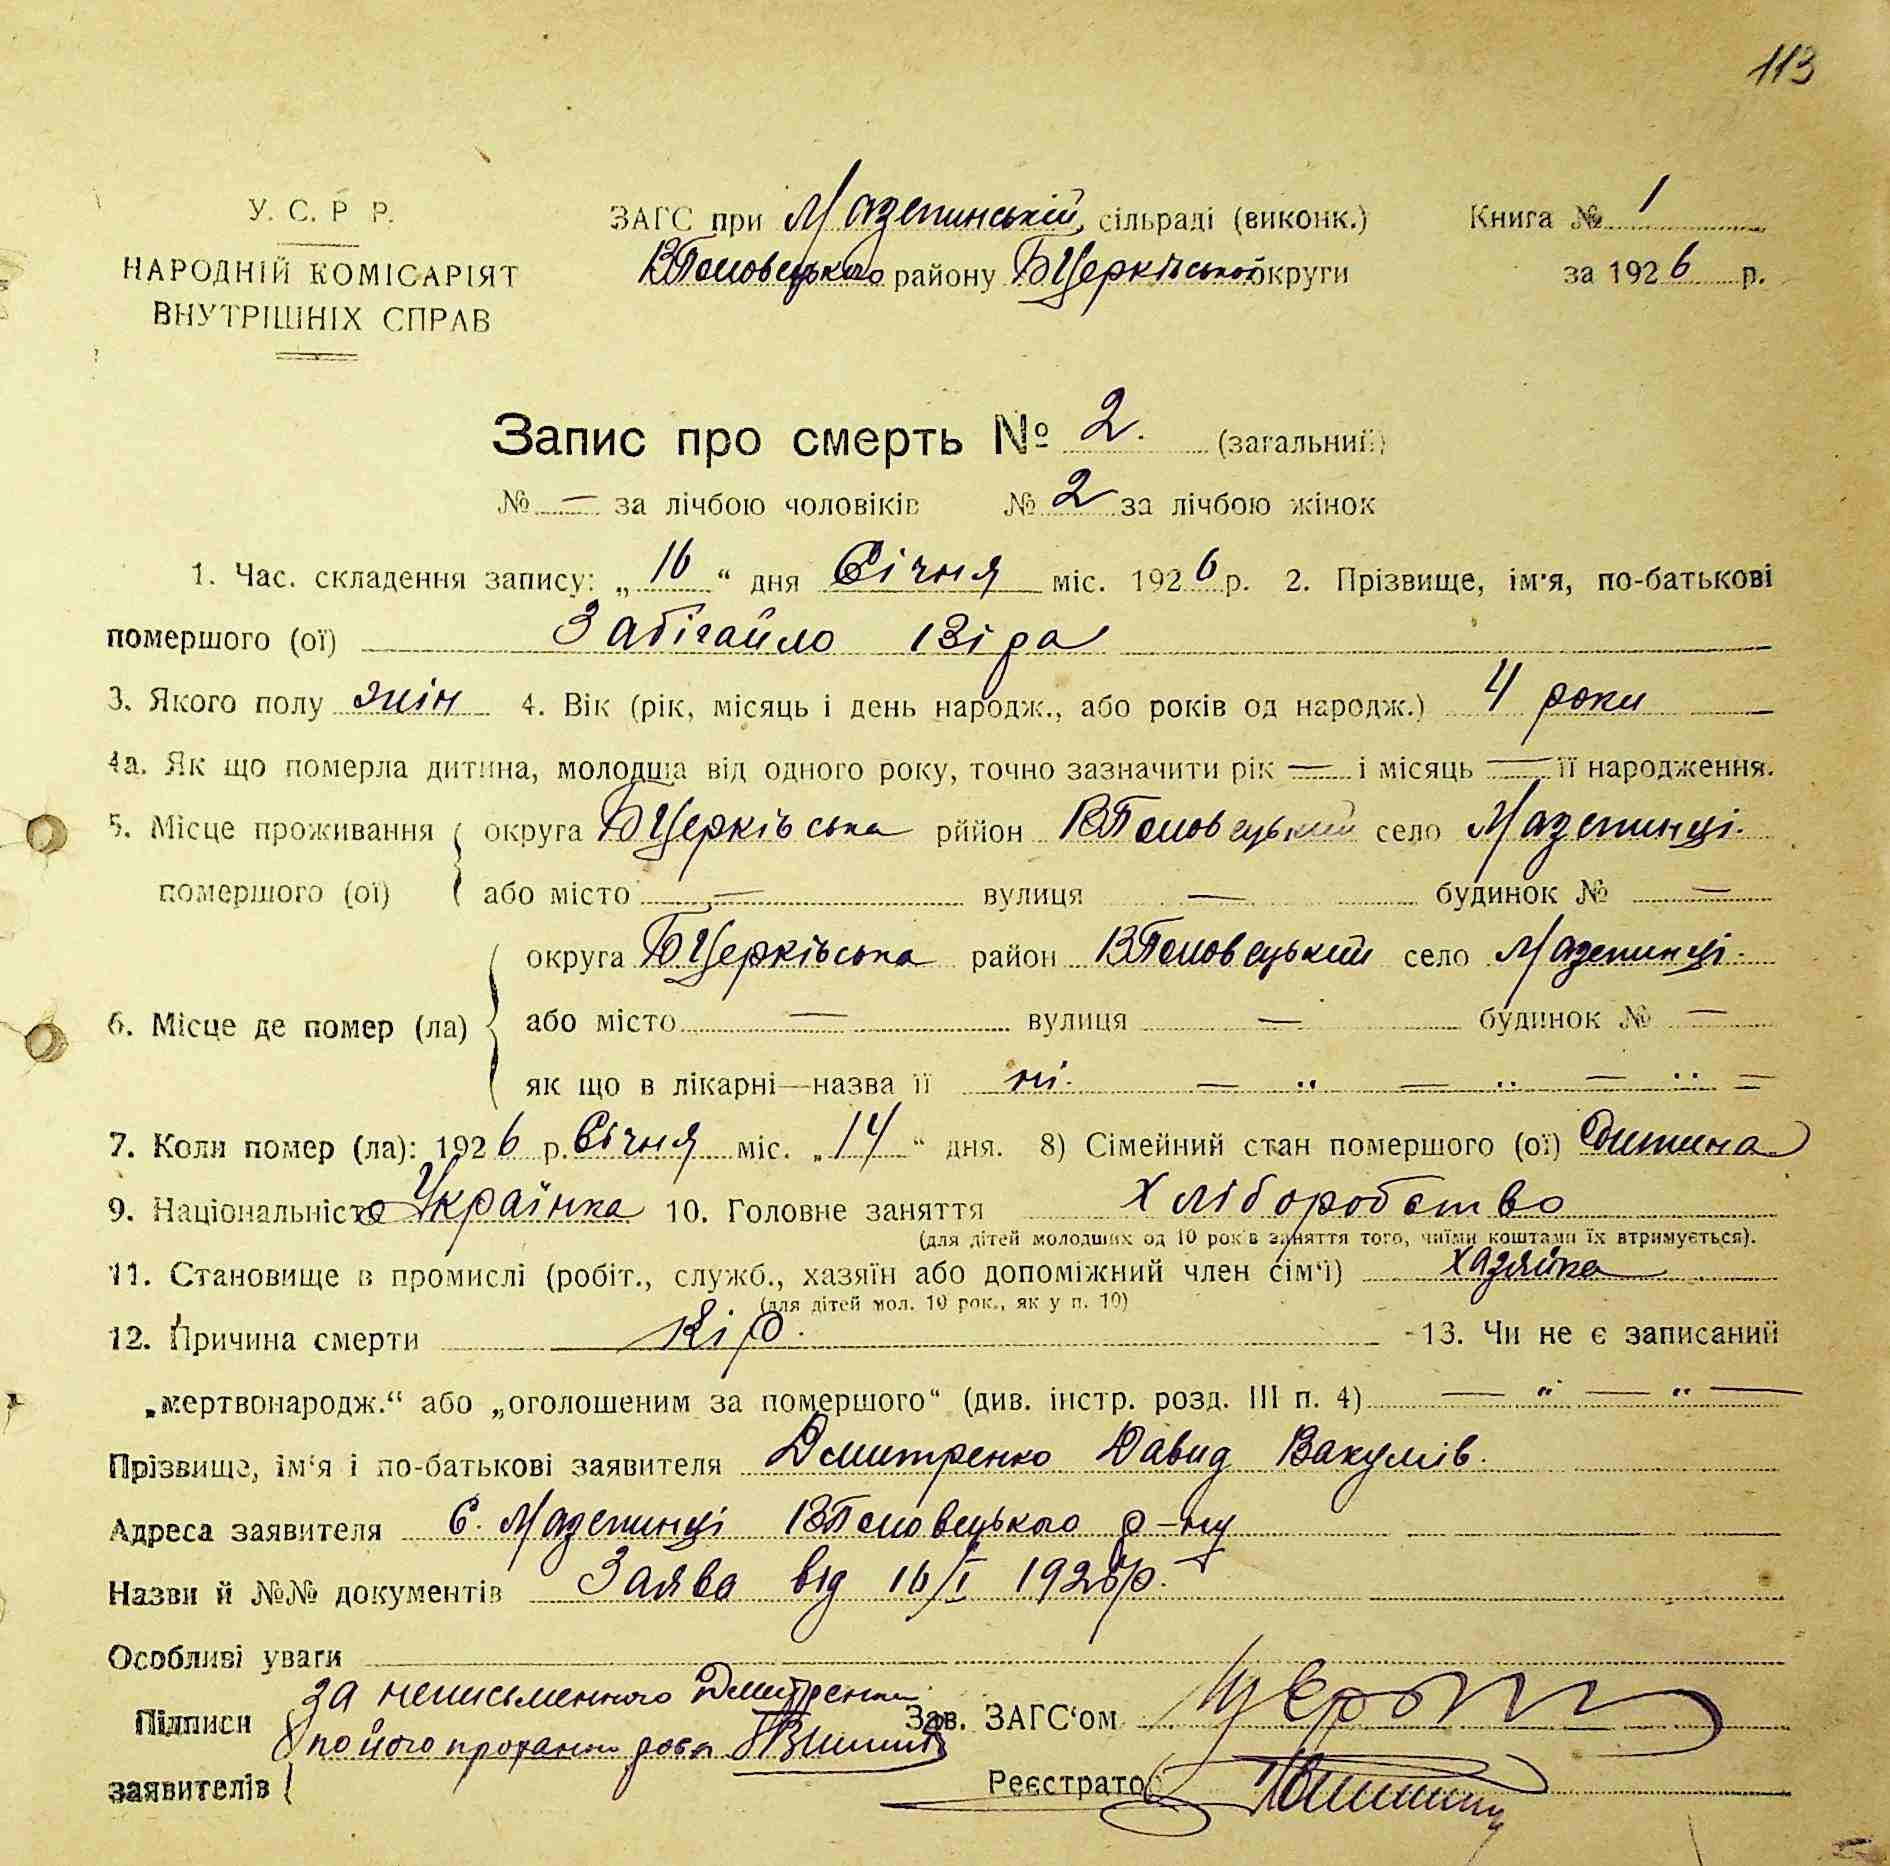 113
У. С. Р Р.
НАРОДНІЙ КОМІСАРІЯТ
ВНУТРІШНІХ СПРАВ
ЗАГС при Мазепинській сільраді (виконк.)
ВПоловецького району БЦерківської округи
Книга № 1
за 1926 р.
Запис про смерть № 2. (загальний)
№ — за лічбою чоловіків № 2 за лічбою жінок
1. Час. складення запису: „16“ дня Січня міс. 1926 р. 2. Прізвище, ім'я, по-батькові
помершого (ої) Забігайло Віра
3. Якого полу жін 4. Вік (рік, місяць і день народж., або років од народж.) 4 роки
4а. Як що померла дитина, молодша від одного року, точно зазначити рік — і місяць — її народження.
5. Місце проживання помершого (ої) { округа БЦерківська рййон ВПоловецький село Мазепинці.
або місто — вулиця — будинок № —
6. Місце де помер (ла) { округа БЦерківська район ВПоловецький село Мазепинці.
або місто — вулиця — будинок № —
як що в лікарні—назва її ні. — „ — „ — „ —
7. Коли помер (ла): 1926 р. Січня міс. „14“ дня. 8) Сімейний стан помершого (ої) Дитина
9. Національність Українка 10. Головне заняття Хліборобство
(для дітей молодших од 10 років заняття того, чиїми коштами їх втримується).
11. Становище в промислі (робіт., служб., хазяїн або допоміжний член сім'ї) хазяїна
(для дітей мол. 10 рок., як у п. 10)
12. Причина смерти Кір. 13. Чи не є записаний
„мертвонародж.“ або „оголошеним за помершого“ (див. інстр. розд. III п. 4) — „ — „ —
Прізвище, ім'я і по-батькові заявителя Дмитренко Давид Вакулів.
Адреса заявителя С. Мазепинці ВПоловецького р-ну
Назви й №№ документів Заява від 16/I 1926р.
Особливі уваги
Підписи заявителів { за неписьменного Дмитренка
по його проханню
Зав. ЗАГС'ом
Реєстратор